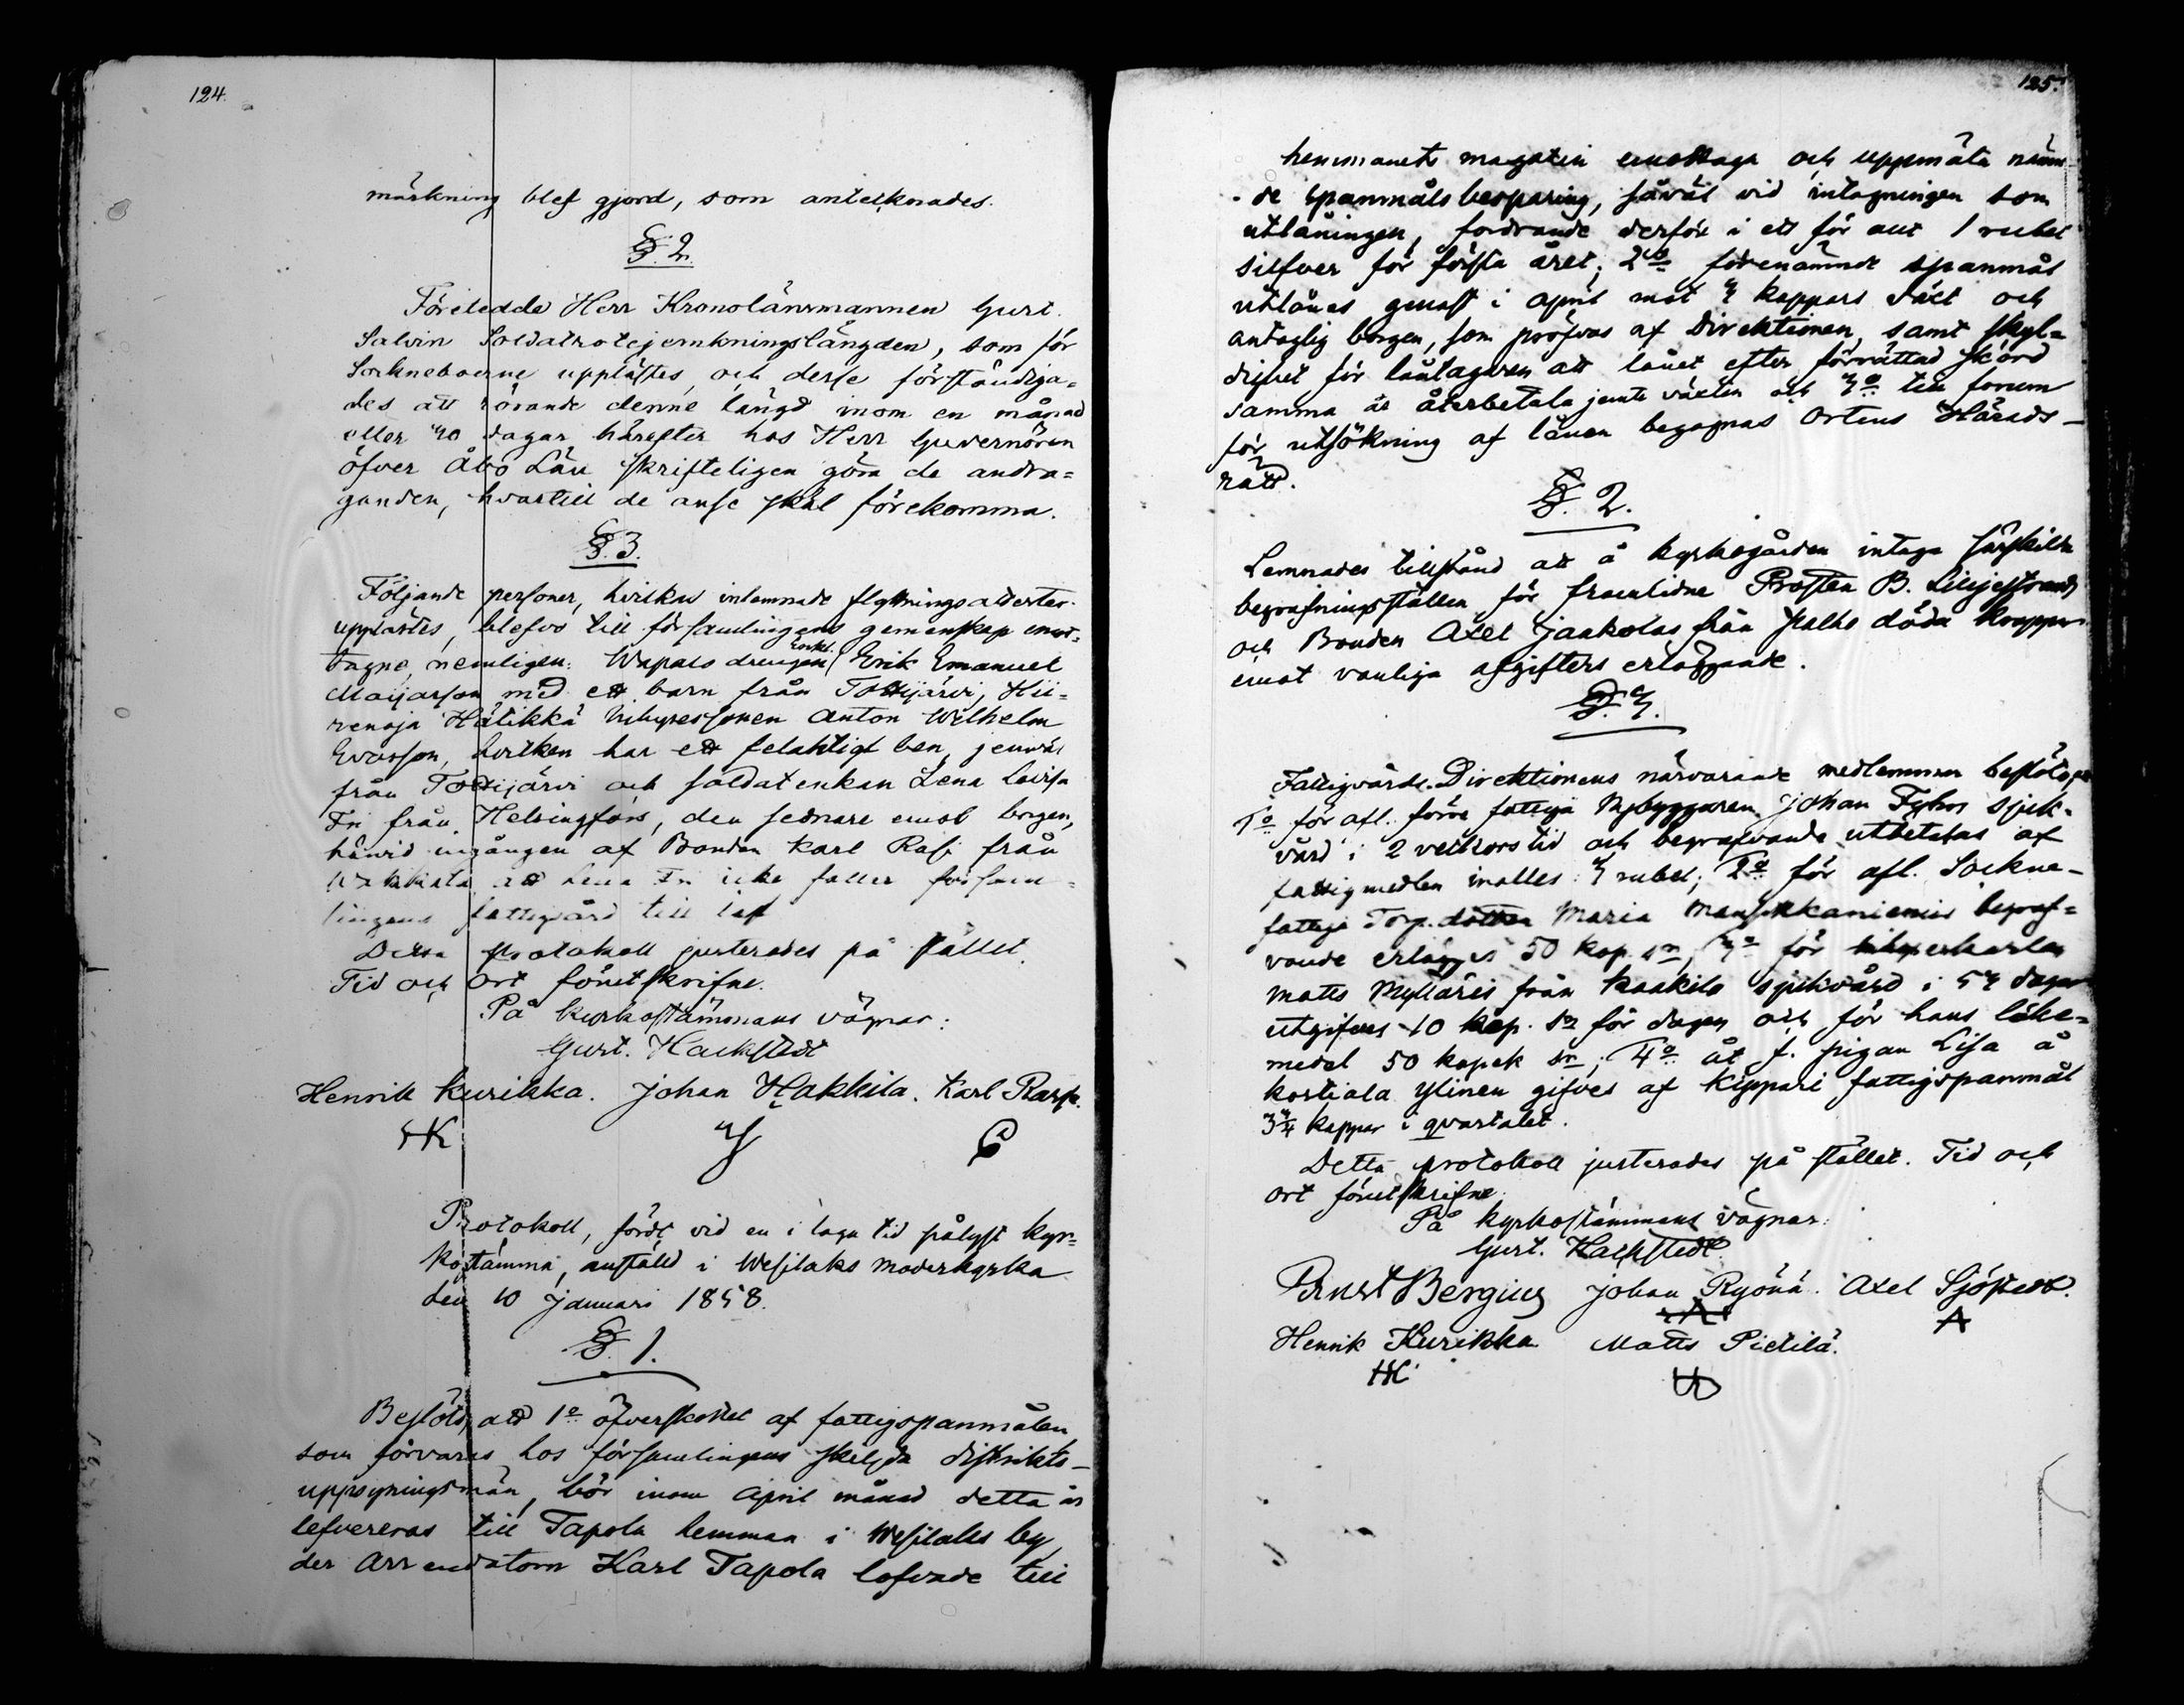 124.
märkning blef gjord, som antecknades.
§. 2.
Företedde Herr Kronolänsmannen Gust.
Salvin Soldatrotejemkningslängden, som för
Sockneboerne upplästes och desse förständiga=
des att rörande denne längd inom en månad
eller 40 dagar härefter hos Herr Guvernören
öfver Åbo Län skrifteligen göra de andra=
ganden, hvartill de anse skäl förekomma.
§. 3.
Följande personer, hvilkas inlemnade flyttningsattester
upplästes, blefvo till församlingens gemenskap emot-
tagne, nemligen: Wapals drengen Enkl. Erik Emanuel
Maijasson med ett barn från Tottijärvi, Hii=
renoja Hätikkä Inhysessonen Anton Wilhelm
Evasson, hvilken har ett felaktigt ben, jemväl
från Tottijärvi och soldatenkan Lena Lovisa
Fri från Helsingfors, den sednare emot borgen,
härvid ingången af Bonden Karl Rasi från
att Lena Fri icke faller försam=
lingens fattigvård till last
Detta protokoll justerades på stället.
Tid och ort förutskrifne.
På kyrkostämmans vägnar:
Gust. Hackstedt
Henrik Kurikka. Johan Hakkila. Karl Rasi.
HK
Protokoll, fördt vid en i laga tid pålyst kyr=
kostämma, anställd i Wesilaks moderkyrka
den 10 Januari 1858.
§. 1.
Beslöts, att 1o öfverskottet af fattigspanmålen,
som förvaras hos församlingens skeljda distrikts-
uppsyningsmän, bör inom April månad detta år
lefvereras till Tapola hemman i Wesilaks by,
der Arrendatorn Karl Tapola lofvade till
125.
hemmanets magazin emottaga och uppmäta nämn-
de spanmåls besparing, såväl vid intagningen som
utlåningen, fordrande derför i ett för allt 1 rubel
silfver för första året; 2o förenämnde spanmål
utlånas genast i april mot 3 kappars växt och
antaglig borgen, som pröfvas af Direktionen, samt skyl=
dighet för låntagaren att lånet efter förrättad skörd
samma år återbetala jemte växten och 3o till forum
för utsökning af lånen begagnas Ortens Härads-
rätt.
§. 2.
Lemnades tillstånd att å kyrkogården intaga särskilda
begrafningsställen för framlidne Prosten B. Liliestrand
och Bonden Axel Jaakolas från Palho döda kroppar
emot vanliga afgifters erläggande.
§. 3.
Fattigvårds Direktionens närvarande medlemmar beslöto, att
1o för afl. förre fattige Nybyggaren Johan Fyhrs sjuk-
vård i 2 veckors tid och begrafvande utbetalas af
fattigmedlen inalles 3 rubel; 2o för afl. Sockne-
fattige Torp.dottren Maria Mansikkaniemis begraf=
vande erlägges 50 kop. sr; 3o för inhyseskarlen
Matts Mylläris från Kaakila sjukvård i 53 dagar
utgifves 10 kop. sr för dagen och för hans läke=
medel 50 kopek sr; 4o åt f. pigan Lisa å
Kostiala Ylinen gifves af Kippari fattigspanmål
3 3/4 kappar i qvartalet.
Detta protokoll justerades på stället. Tid och
ort förutskrifne.
På kyrkostämmans vägnar:
Gust. Hackstedt.
Ernst Bergius Johan Ryönä. Axel Sjöstedt.
A
Henrik Kurikka Matts Pietilä.
HK